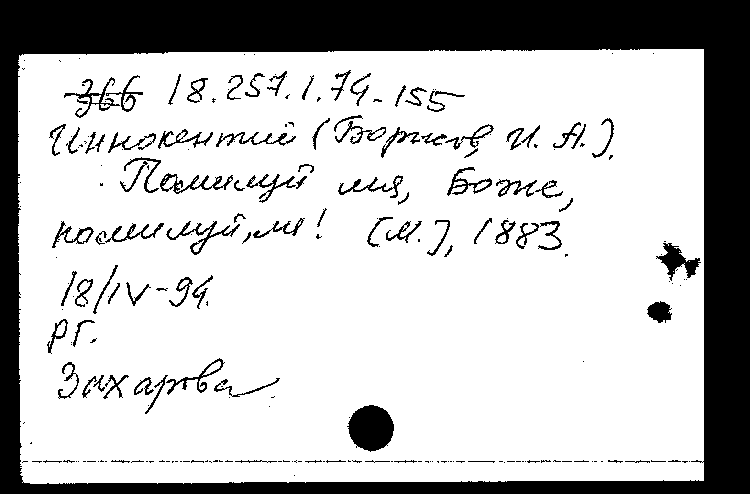 ~~366~~ 18.257.1.74-155
Иннокентий (Борисов, И. А.).
Помилуй мя, Боже,
помилуй, мя! [М.], 1883.
18/IV-94.
РГ.
Захарова